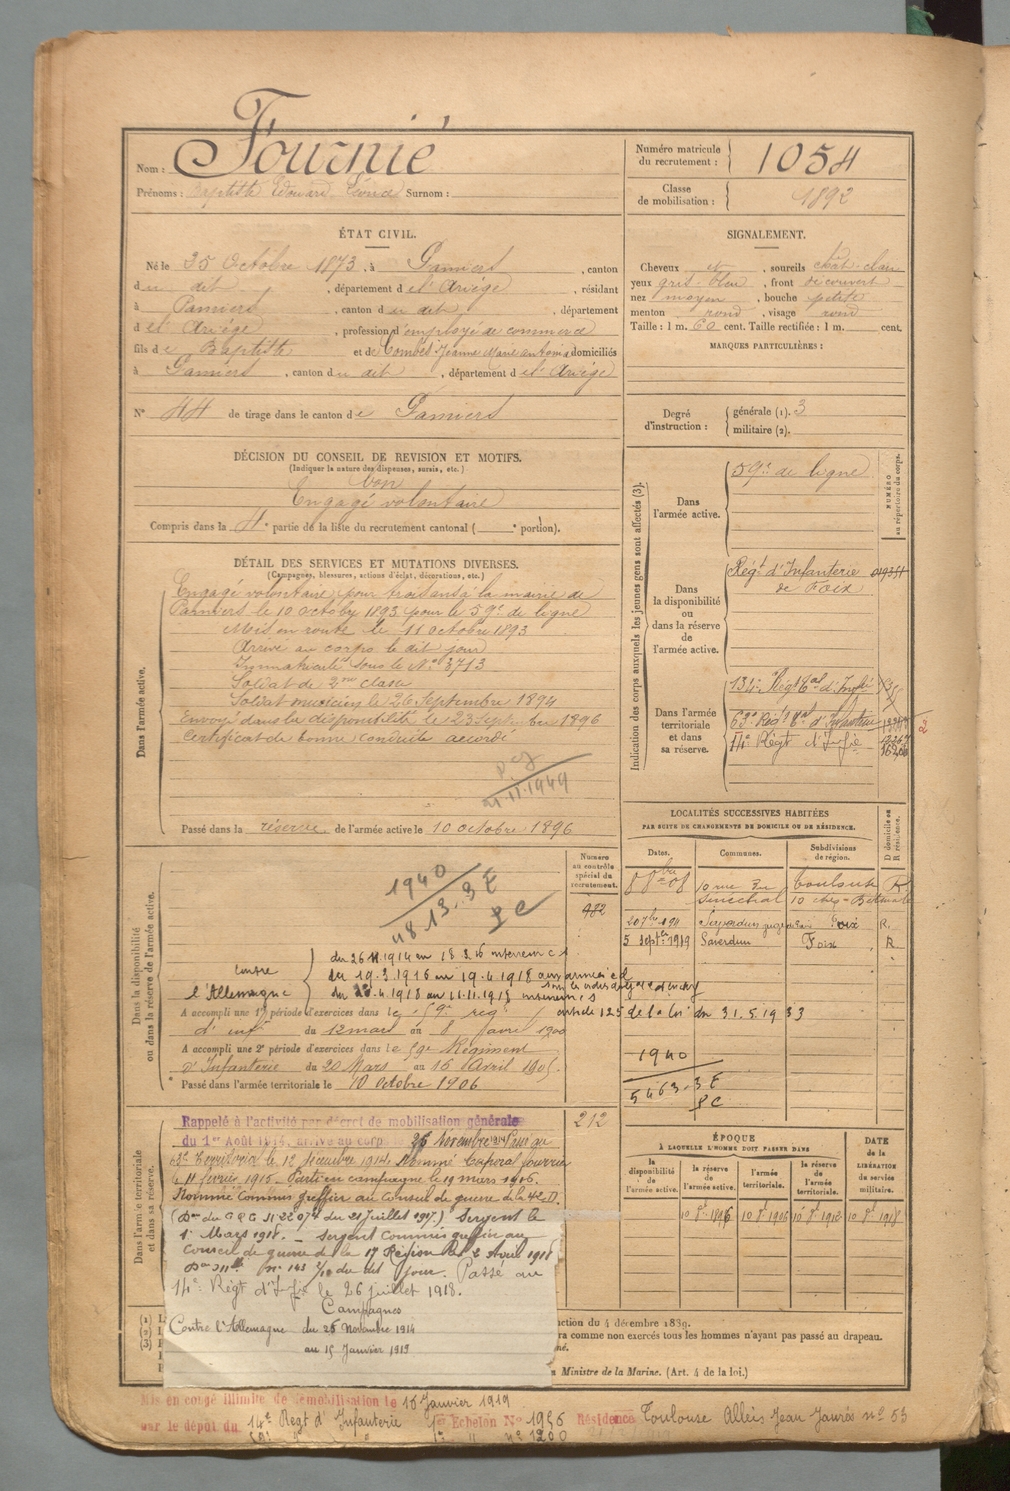 Nom : Fournié
Prénoms : Baptiste Edouard Surnom :
Numéro matricule du recrutement : 1054
Classe de mobilisation : 1892
ÉTAT CIVIL.
Né le 25 Octobre 1873, à Pamiers, canton
du dit, département de l'Ariège, résidant
à Pamiers, canton du dit, département
de l'Ariège, profession d'employé de commerce
fils de Baptiste et de Combes Jeanne Marie Antonia domiciliés
à Pamiers, canton du dit, département de l'Ariège
N° 44 de tirage dans le canton de Pamiers
SIGNALEMENT.
Cheveux et, sourcils chât. clair
yeux gris bleu, front découvert
nez moyen, bouche petite
menton rond, visage rond
Taille : 1 m. 60 cent. Taille rectifiée : 1 m. cent.
MARQUES PARTICULIÈRES :
Degré d'instruction : générale (1). 3
militaire (2).
DÉCISION DU CONSEIL DE REVISION ET MOTIFS.
(Indiquer la nature des dispenses, sursis, etc.)
bon
Engagé volontaire
Compris dans la 4e partie de la liste du recrutement cantonal ( e portion).
DÉTAIL DES SERVICES ET MUTATIONS DIVERSES.
(Campagnes, blessures, actions d'éclat, décorations, etc.)
Dans l'armée active.
Engagé volontaire pour trois ans à la mairie de
Pamiers le 10 octobre 1893 pour le 59e de ligne
Mis en route le 11 octobre 1893
Arrivé au corps le dit jour
Immatriculé sous le N° 3713
Soldat de 2me classe
Soldat musicien le 26 Septembre 1894
Envoyé dans la disponibilité le 23 Septembre 1896
Certificat de bonne conduite accordé
21.11.1949
Passé dans la réserve de l'armée active le 10 octobre 1896
Indication des corps auxquels les jeunes gens sont affectés (3).
NUMÉRO au répertoire du corps.
Dans l'armée active. 59e de ligne
Dans la disponibilité ou dans la réserve de l'armée active. Régt d'Infanterie
de Foix
Dans l'armée territoriale et dans sa réserve. 134e Régt Tal d'Infie
14e Régt d'Infie
LOCALITÉS SUCCESSIVES HABITÉES
PAR SUITE DE CHANGEMENTS DE DOMICILE OU DE RÉSIDENCE.
Dates. Communes. Subdivisions de région. D domicile ou R résidence.
8 8bre 08 10 rue du Sénéchal Toulouse R
Saverdun Foix R.
5 septe 1919 Saverdun Foix R
Dans la disponibilité ou dans la réserve de l'armée active.
Numéro au contrôle spécial du recrutement.
982
1940
4813.3E
PC
contre l'Allemagne
du 26.11.1914 au 18.3.16 intérieur CS
du 19.3.1916 au 19.4.1918 aux armées CD
du 20.4.1918 au 11.11.1918 intérieur CS
article 125 de la loi du 31.5.1933
A accompli une 1re période d'exercices dans le 59e reg.
d'infie du 12 mars au 8 1900
A accompli une 2e période d'exercices dans le 59e Régiment
d'Infanterie du 20 Mars au 16 Avril 1905.
Passé dans l'armée territoriale le 10 Octobre 1906
1940
5463.3E
PC
Dans l'armée territoriale et dans sa réserve.
212
Rappelé à l'activité par décret de mobilisation générale
du 1er Août 1914, arrivé au corps le 26 Novembre 1914 Passé au
Territorial le 12 décembre 1914. Nommé Caporal fourrier
le 11 février 1915. Parti en campagne le 19 mars 1916.
Nommé Commis greffier au Conseil de guerre de la 42e D.I.
(Don du G.Q.G. N° 22074 du 21 Juillet 1917.) Sergent le
1er Mars 1918. _ Sergent Commis greffier au
Conseil de guerre de la 17e Région le 2 Avril 1918
Don Mlle N° 143 2/10 du dit jour. Passé au
14e Régt d'Infie le 26 juillet 1918.
Campagnes
Contre l'Allemagne du 26 Novembre 1914
au 15 Janvier 1919
ÉPOQUE
À LAQUELLE L'HOMME DOIT PASSER DANS
la disponibilité de l'armée active. la réserve de l'armée active. l'armée territoriale. la réserve de l'armée territoriale.
DATE de la LIBÉRATION du service militaire.
10 8e 1896 10 8e 1906 10 8e 1912 10 8e 1918
(1)
(2)
(3)
uction du 4 décembre 1889.
ra comme non exercés tous les hommes n'ayant pas passé au drapeau.
Ministre de la Marine. (Art. 4 de la loi.)
Mis en congé illimité de démobilisation le 16 Janvier 1919
par le dépôt du 14e Regt d'Infanterie 1er Echelon N° 1956 Résidence Toulouse Allées Jean Jaurès n° 53
n° 1200